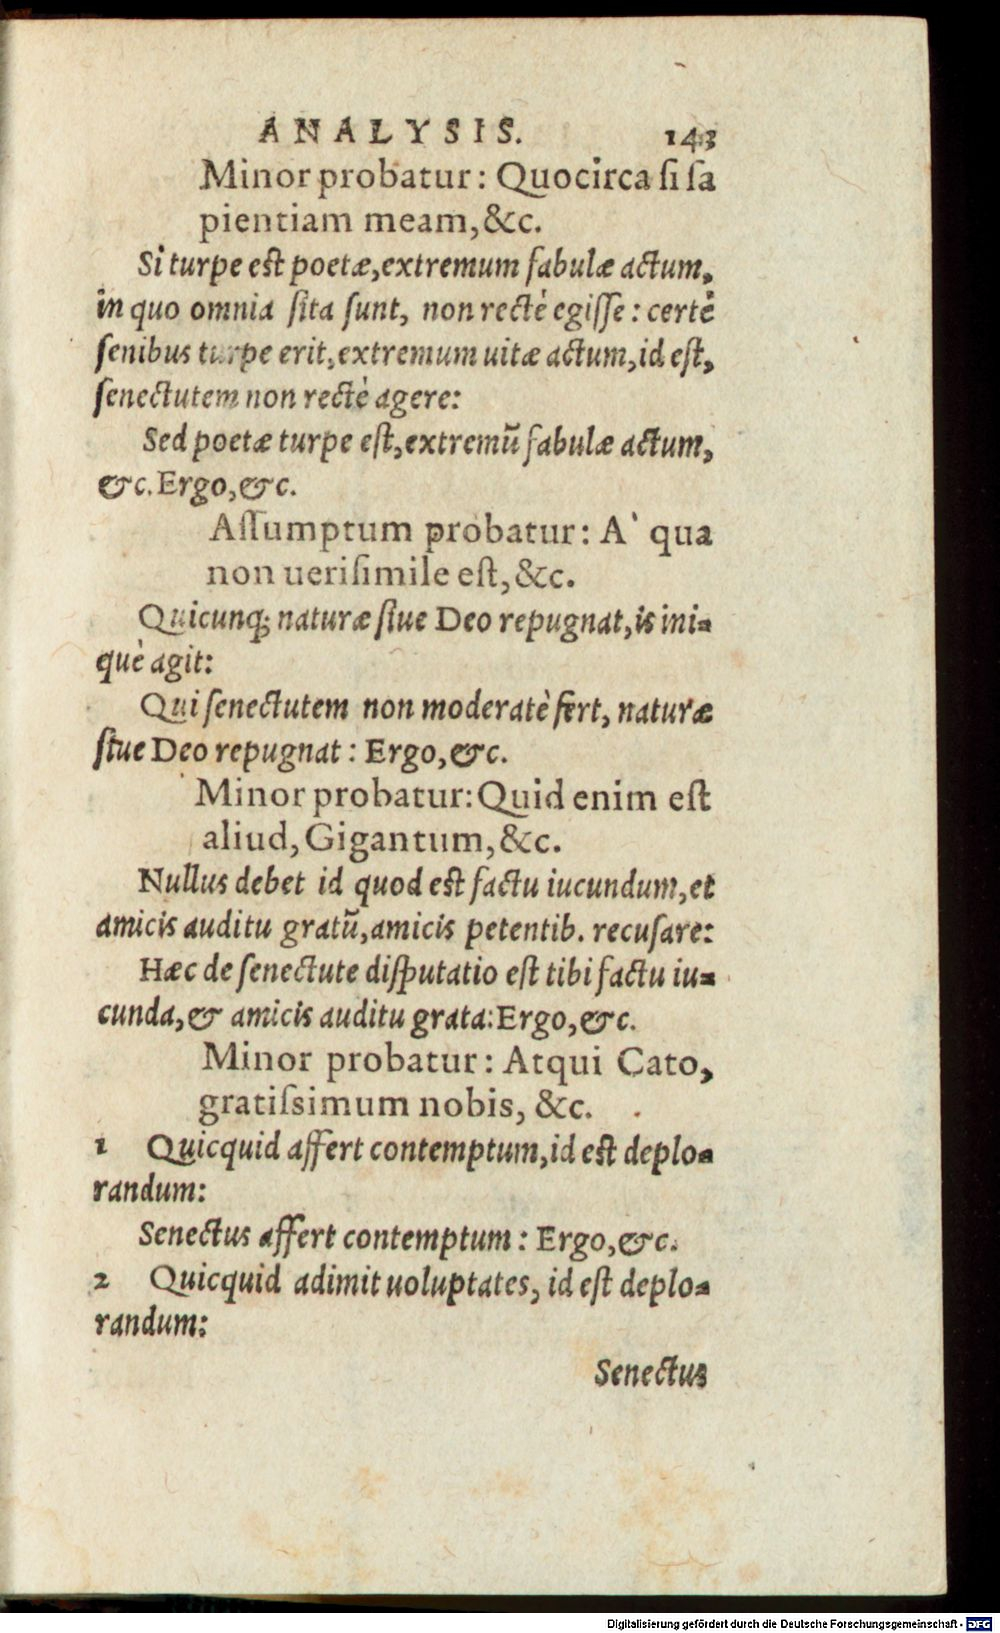 ANALYSIS. 143
Minor probatur: Quocirca ſi ſa
pientiam meam, &c.
Si turpe est poetæ, extremum fabulæ actum,
in quo omnia ſita ſunt, non rectè egiſſe: certè
ſenibus turpe erit, extremum uitæ actum, id eſt,
ſenectutem non rectè agere:
Sed poetæ turpe eſt, extremū fabulæ actum,
&c. Ergo, &c.
Aſſumptum probatur: A` qua
non ueriſimile eſt, &c.
Quicunq; naturæ ſiue Deo repugnat, is ini-
què agit:
Qui ſenectutem non moderatè fert, naturæ
ſiue Deo repugnat: Ergo, &c.
Minor probatur: Quid enim eſt
aliud, Gigantum, &c.
Nullus debet id quod est factu iucundum, et
amicis auditu gratū, amicis petentib. recuſare:
Hæc de ſenectute diſputatio eſt tibi factu iu-
cunda, & amicis auditu grata: Ergo, &c.
Minor probatur: Atqui Cato,
gratiſsimum nobis, &c.
1 Quicquid affert contemptum, id est deplo-
randum:
Senectus affert contemptum: Ergo, &c.
2 Quicquid adimit uoluptates, id eſt deplo-
randum:
Senectus
Digitalisierung gefördert durch die Deutsche Forschungsgemeinschaft - DFG